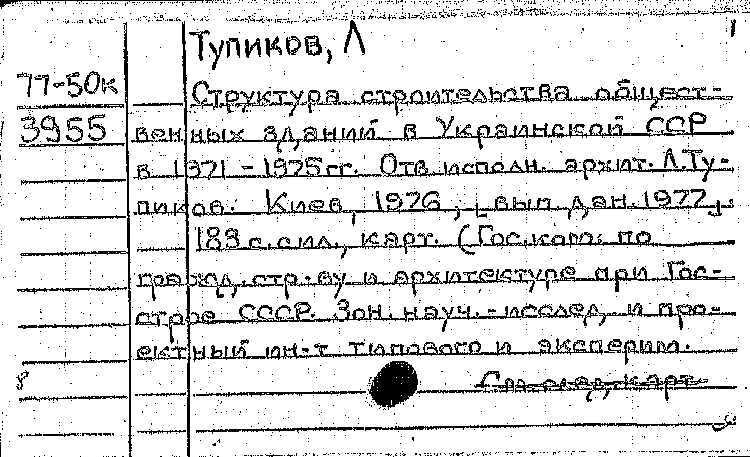 1
Тупиков, Л
77-50к
Структура строительства общест-
3955
венных зданий в Украинской ССР
в 1971-1975 гг. Отв. исполн. архит. Л. Ту-
пиков. Киев, 1976, [вып. дан. 1977].
183 с. с ил., карт. (Гос. ком. по
гражд. стр-ву и архитектуре при Гос-
строе СССР. Зон. науч.-исслед. и про-
ектный ин-т типового и эксперим.
8
См. след. карт